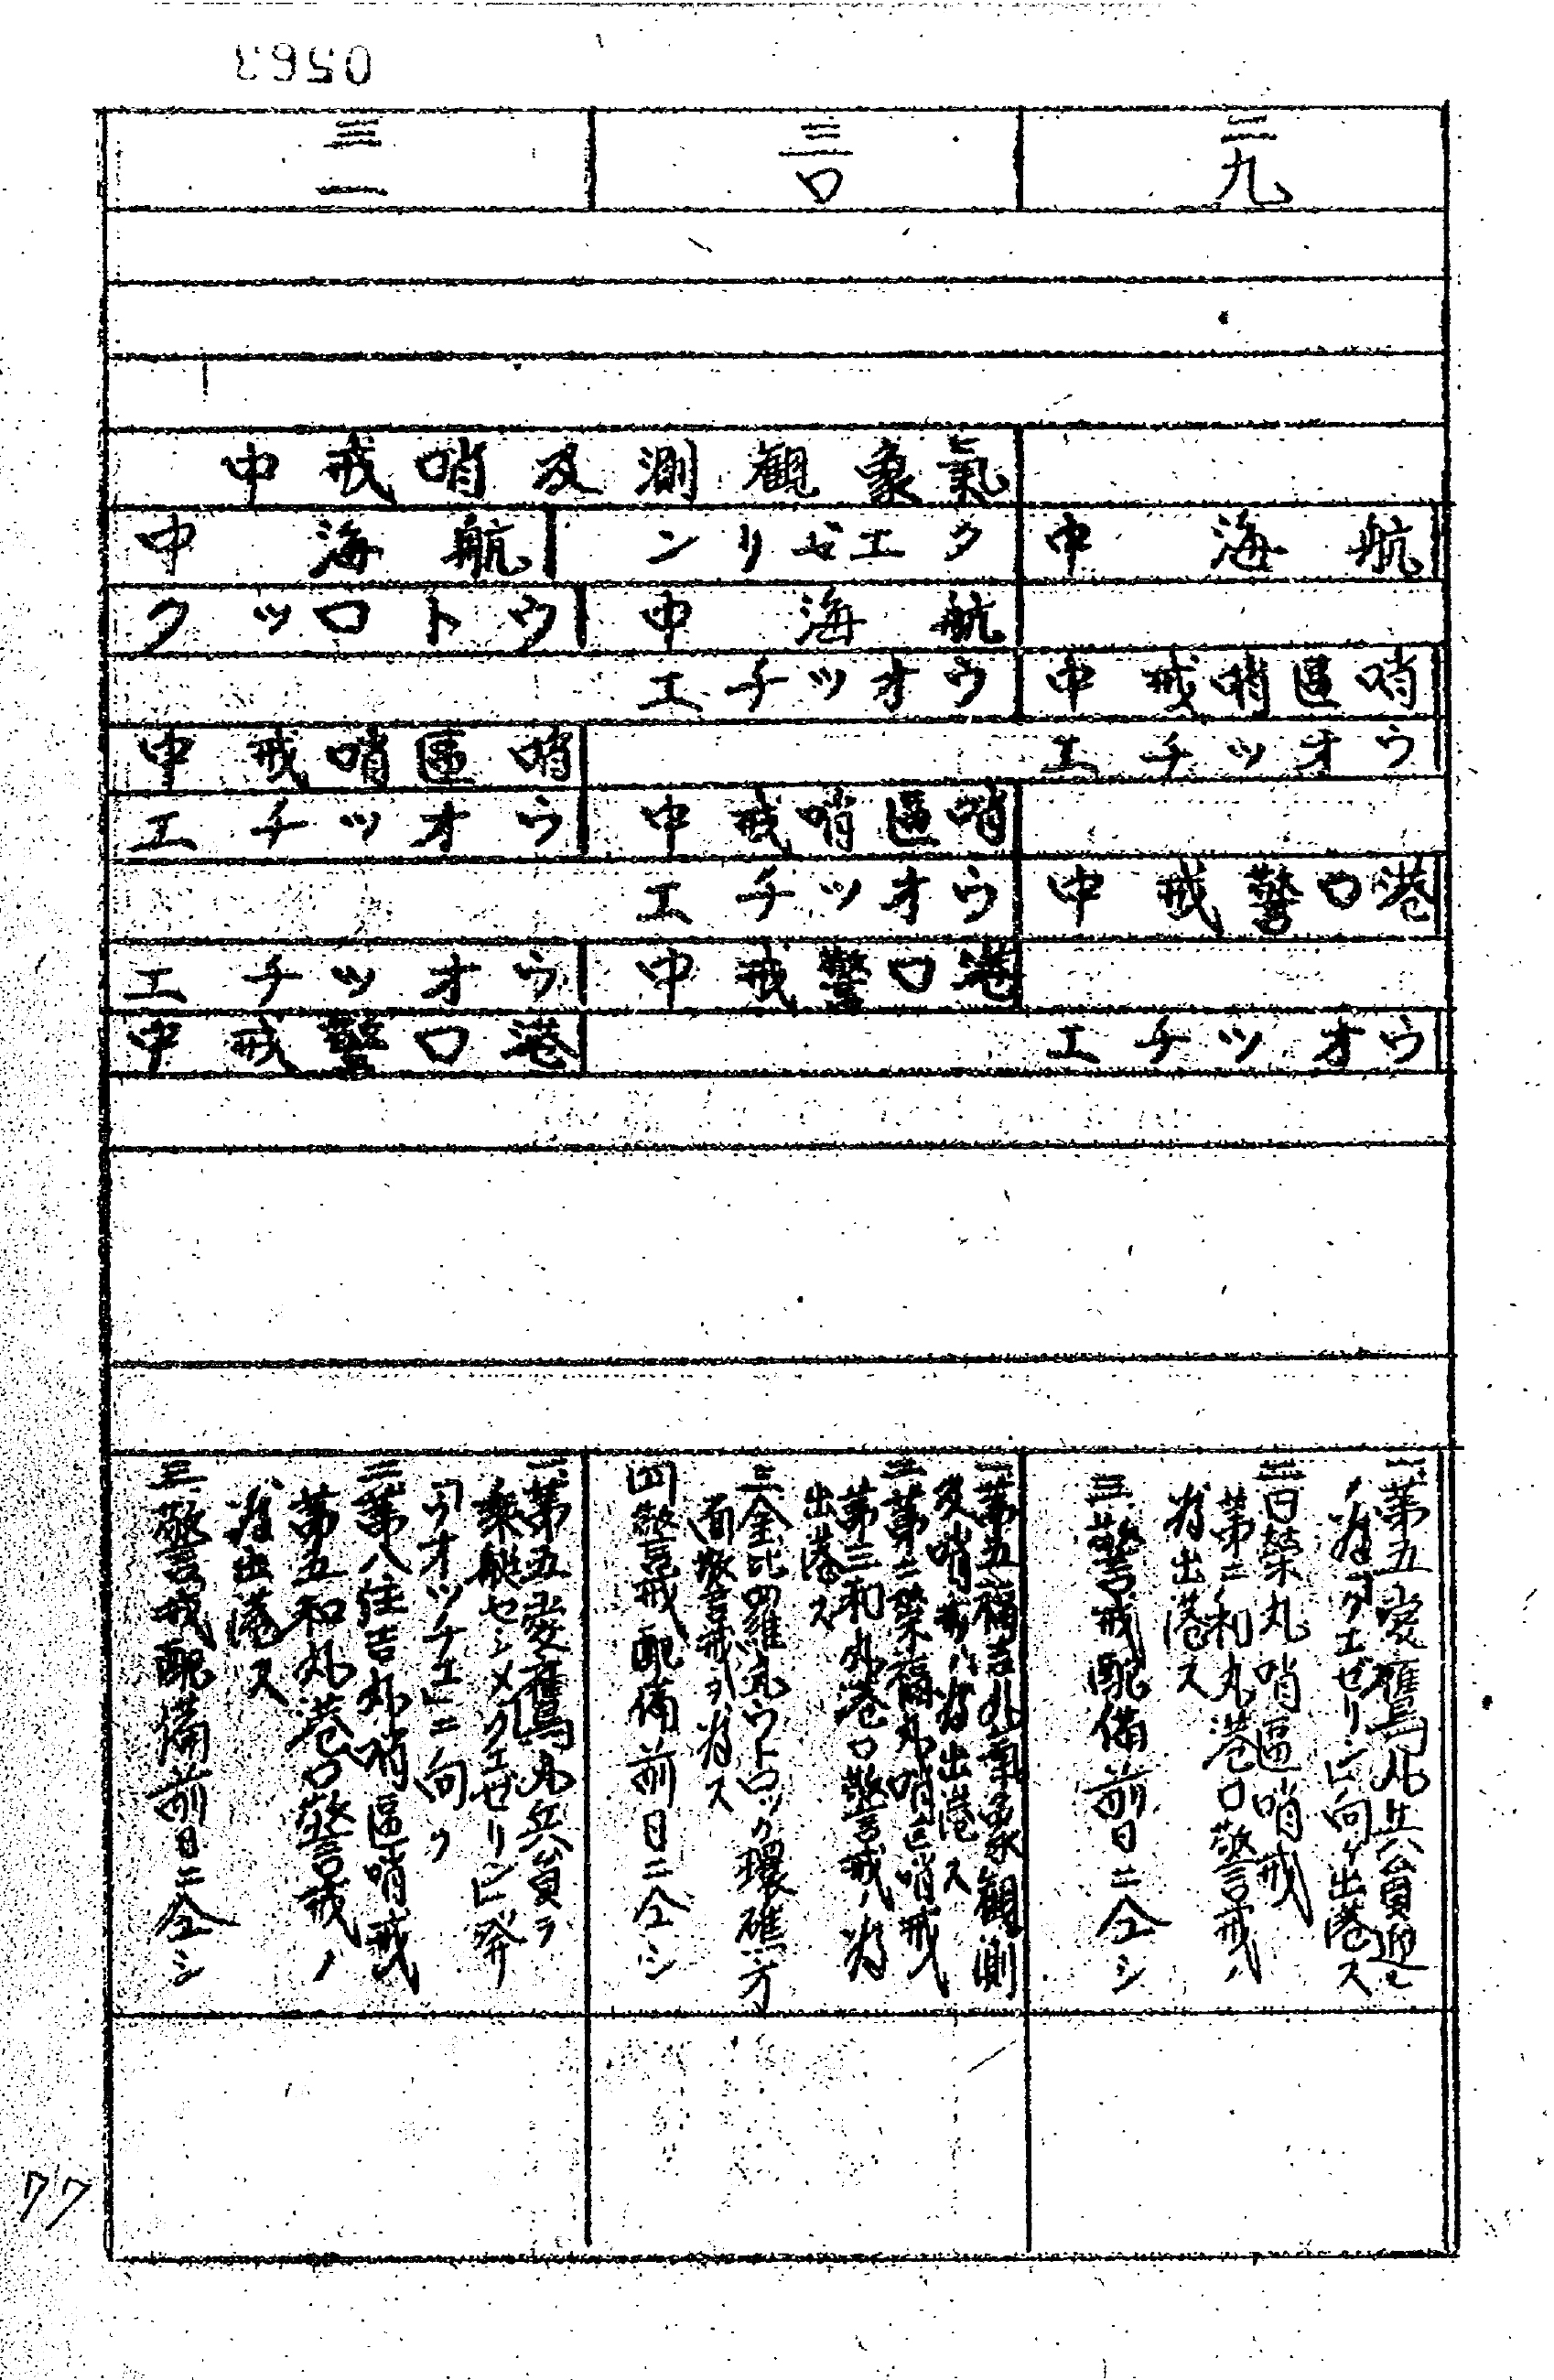 0563
二九
三〇
三一
氣象観測及哨戒中
航海中
クエゼリン
航海中
航海中
ウトロック
哨區哨戒中
ウオッチエ
ウオッチエ
哨區哨戒中
哨區哨戒中
ウオッチエ
港口警戒中
ウオッチエ
港口警戒中
ウオッチエ
ウオッチエ
港口警戒中
一、第五愛鷹丸兵員迎ヒ
ノ為クエゼリンに向ケ出港ス
二、日榮丸哨區哨戒
第二和丸港口警戒ノ
為出港ス
三、警戒配備前日ニ仝シ
一、第五福吉丸氣象観測
及哨戒ノ為出港ス
二、第二榮福丸哨區哨戒
第三和丸港口警戒ノ為
出港ス
三、金比羅丸ウトロック環礁方
面警戒ヲ為ス
四、警戒配備前日ニ仝シ
一、第五愛鷹丸兵員ヲ
乘艇セシメクエゼリン發
ウオッチエニ向ク
二、第八住吉丸哨區哨戒
第五和丸港口警戒ノ
為出港ス
三、警戒配備前日ニ仝シ
77